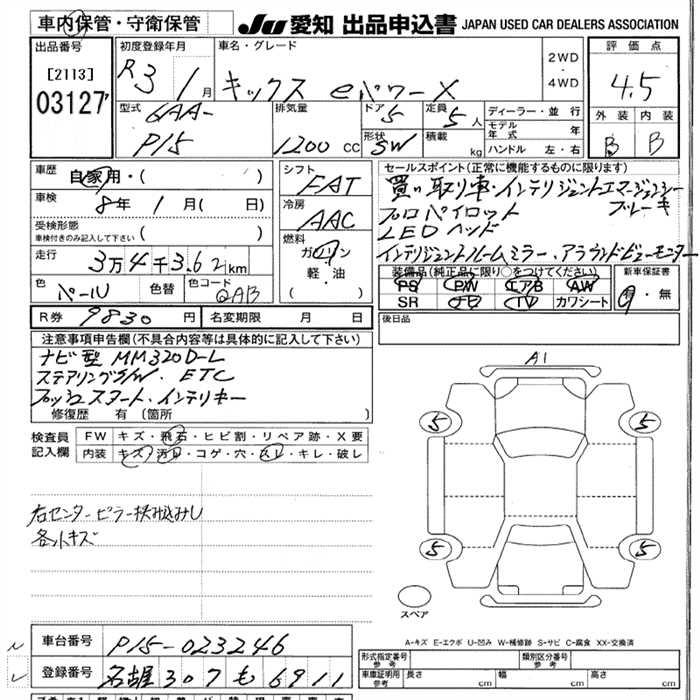 車内保管・守衛保管
JU 愛知 出品申込書 JAPAN USED CAR DEALERS ASSOCIATION
出品番号
[2113]
03127
初度登録年月
R3 1月
車名・グレード
キックス eパワーX
2WD
・
4WD
評価点
4.5
外装 内装
B B
型式
6AA-
P15
排気量
1200 cc
ドア 5
形状 SW
定員 5人
積載 kg
ディーラー・並行
モデル年式 年
ハンドル 左・右
車歴
自家用・( )
車検
8年 1月( 日)
受検形態
車検付きのみ記入して下さい ( )
走行
3万4千362km
色
パール
色替
色コード
QAB
シフト
FAT
冷房
AAC
燃料
ガソリン
軽・油
( )
セールスポイント(正常に機能するものに限ります)
買い取り車・インテリジェントエマージェンシー
ブレーキ
プロパイロット
LEDヘッド
インテリジェントルームミラー、アラウンドビューモニター
装備品(純正品に限り○をつけてください)
PS PW エアB AW
SR TV カワシート
新車保証書
有・無
R券 9830円
名変期限 月 日
後日品
注意事項申告欄(不具合内容等は具体的に記入して下さい)
ナビ型 MM320D-L
ステアリングS/W. ETC
プッシュスタート・インテリキー
修復歴 有 〔箇所 〕
検査員
記入欄
FW キズ・飛石・ヒビ割・リペア跡・X要
内装 キズ・汚れ・コゲ・穴・スレ・キレ・破レ
右センターピラー挟み込みし
各小キズ
A1
5 5
5 5
スペア
A-キズ E-エクボ U-凹み W-補修跡 S-サビ C-腐食 XX-交換済
車台番号 P15-023246
登録番号 名古屋 307 も 6911
形式指定番号
参考
類別区分番号
参考
車庫証明用
参考
長さ cm
幅 cm
高さ cm